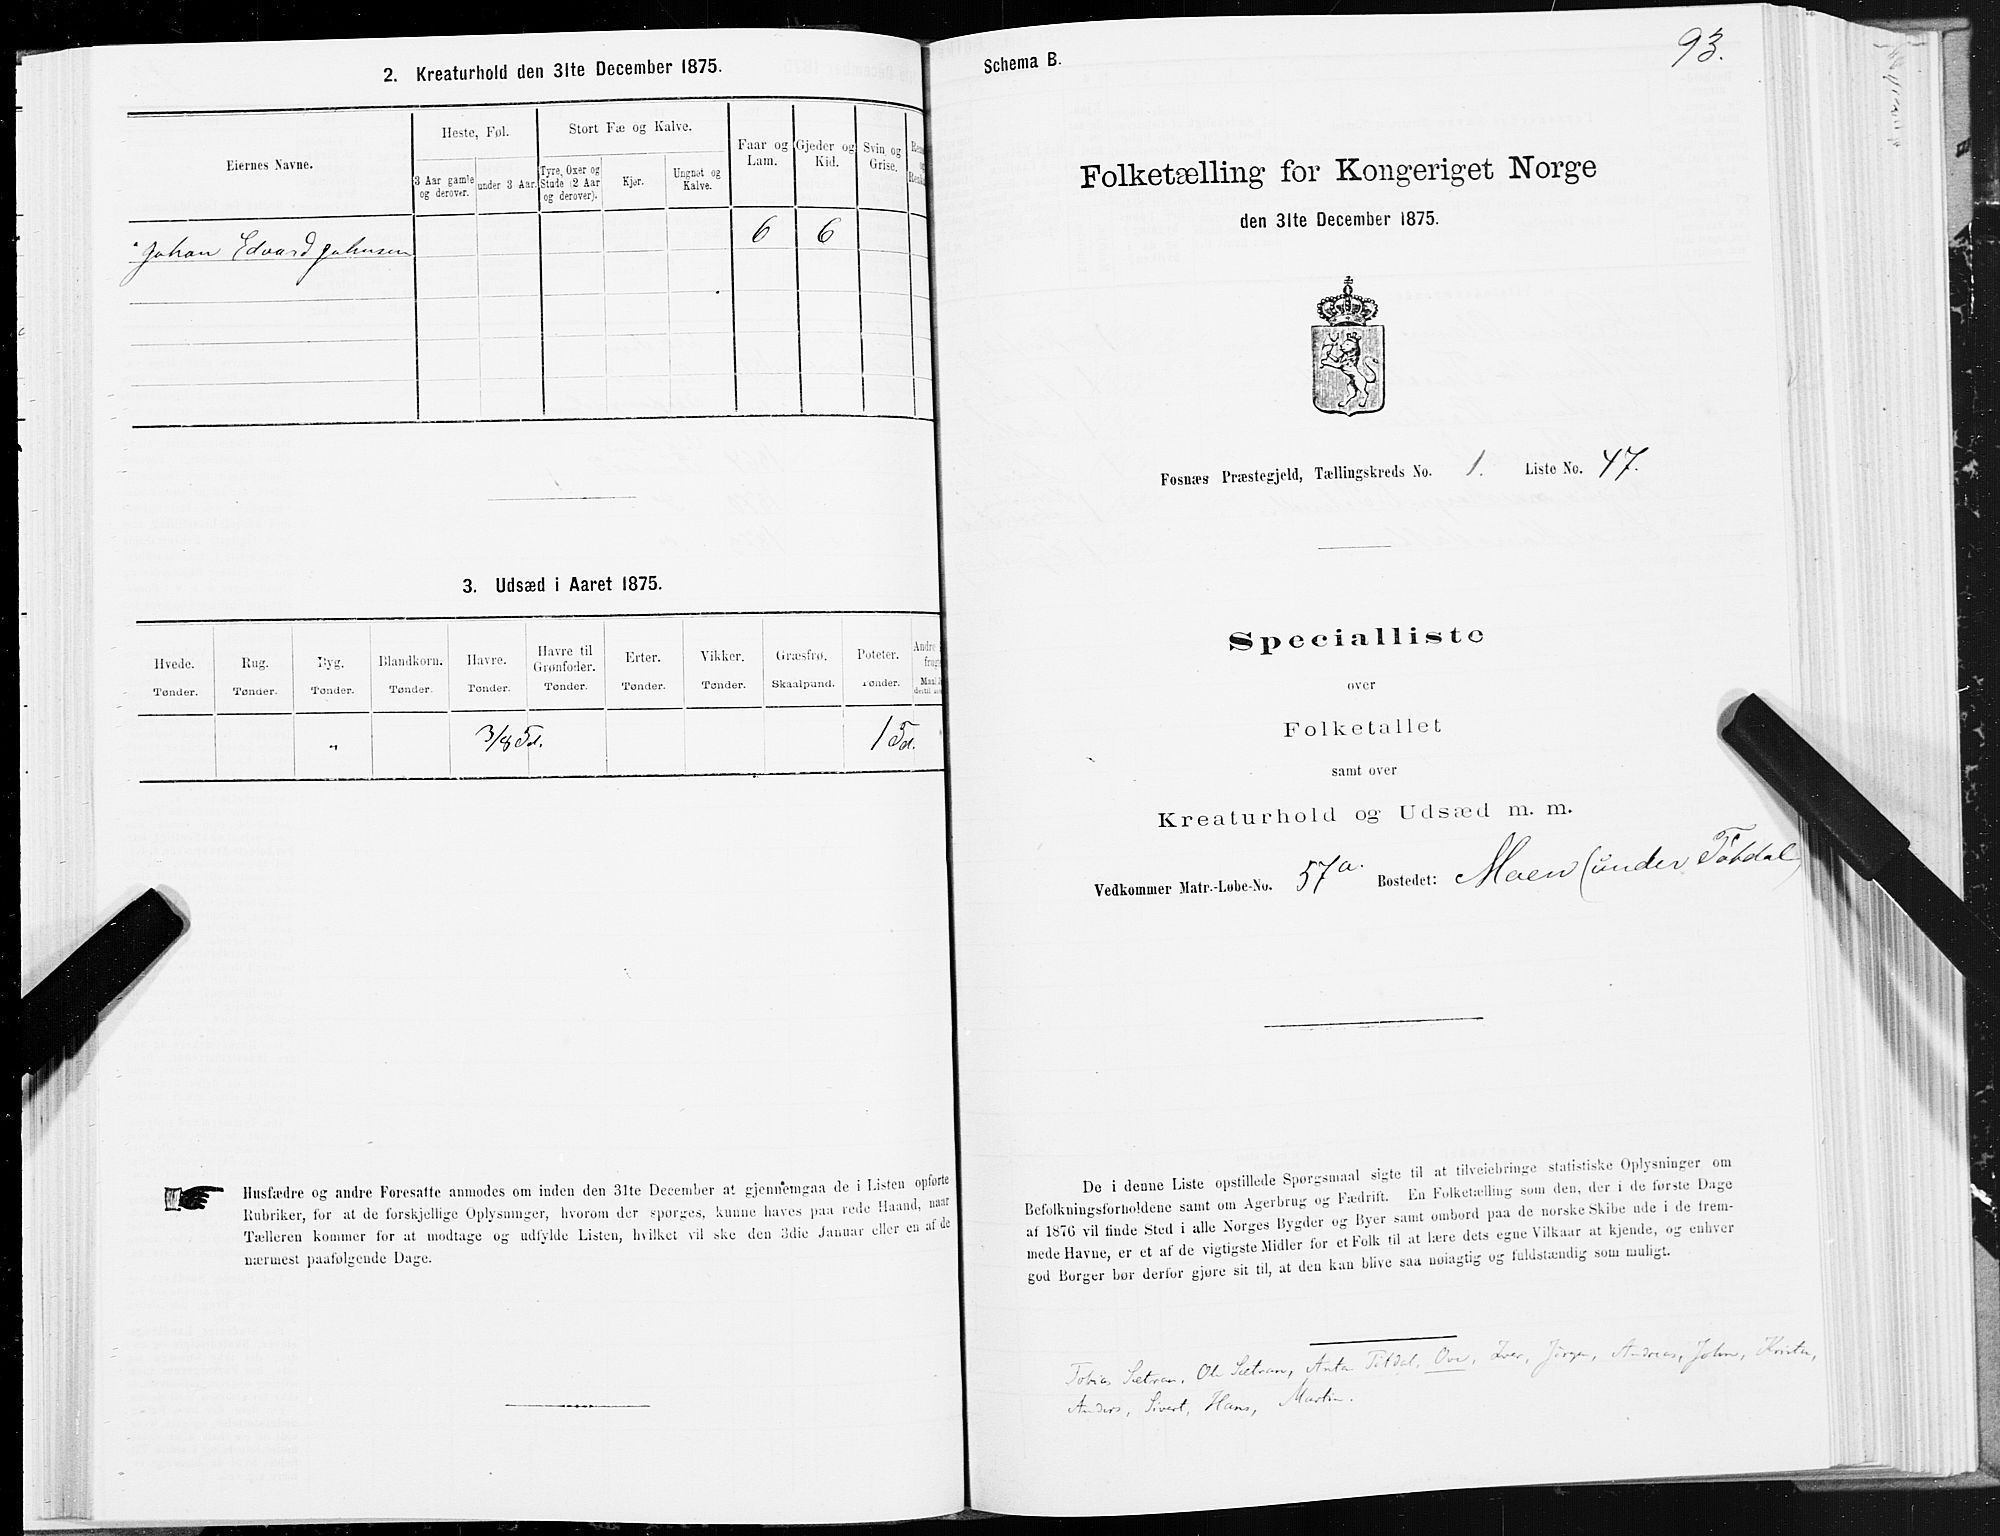 2. Kreaturhold den 31te December 1875.
Eiernes Navne.
Heste, Føl.
Stort Fæ og Kalve.
Faar og Lam.
Gjeder og Kid.
Svin og Grise.
3 Aar gamle og derover.
under 3 Aar.
Tyre, Oxer og Stude (2 Aar og derover).
Kjør.
Ungnøt og Kalve.
Johan Edvard Johnsen 6 6
3. Udsæd i Aaret 1875.
Hvede. Rug. Byg. Blandkorn. Havre. Havre til Grønfoder. Erter. Vikker. Græsfrø. Poteter. Andre
Tønder. Tønder. Tønder. Tønder. Tønder. Tønder. Tønder. Tønder. Skaalpund. Tønder.
" 3/8 Td. 1 Td.
Husfædre og andre Foresatte anmodes om inden den 31te December at gjennemgaa de i Listen opførte
Rubriker, for at de forskjellige Oplysninger, hvorom der spørges, kunne haves paa rede Haand, naar
Tælleren kommer for at modtage og udfylde Listen, hvilket vil ske den 3die Januar eller en af de
nærmest paafølgende Dage.
93.
Schema B.
Folketælling for Kongeriget Norge
den 31te December 1875.
Fosnæs Præstegjeld, Tællingskreds No. 1. Liste No. 47.
Specialliste
over
Folketallet
samt over
Kreaturhold og Udsæd m. m.
Vedkommer Matr.-Løbe-No. 57a. Bostedet: Moen (under Tøtdal)
De i denne Liste opstillede Spørgsmaal sigte til at tilveiebringe statistiske Oplysninger om
Befolkningsforholdene samt om Agerbrug og Fædrift. En Folketælling som den, der i de første Dage
af 1876 vil finde Sted i alle Norges Bygder og Byer samt ombord paa de norske Skibe ude i de frem-
mede Havne, er et af de vigtigste Midler for et Folk til at lære dets egne Vilkaar at kjende, og enhver
god Borger bør derfor gjøre sit til, at den kan blive saa nøiagtig og fuldstændig som muligt.
Tobias Sætran, Ole Sætran, Anton Tøtdal, Ove, Iver, Jørgen, Andreas, John, Kristen,
Anders, Sivert, Hans, Martin.